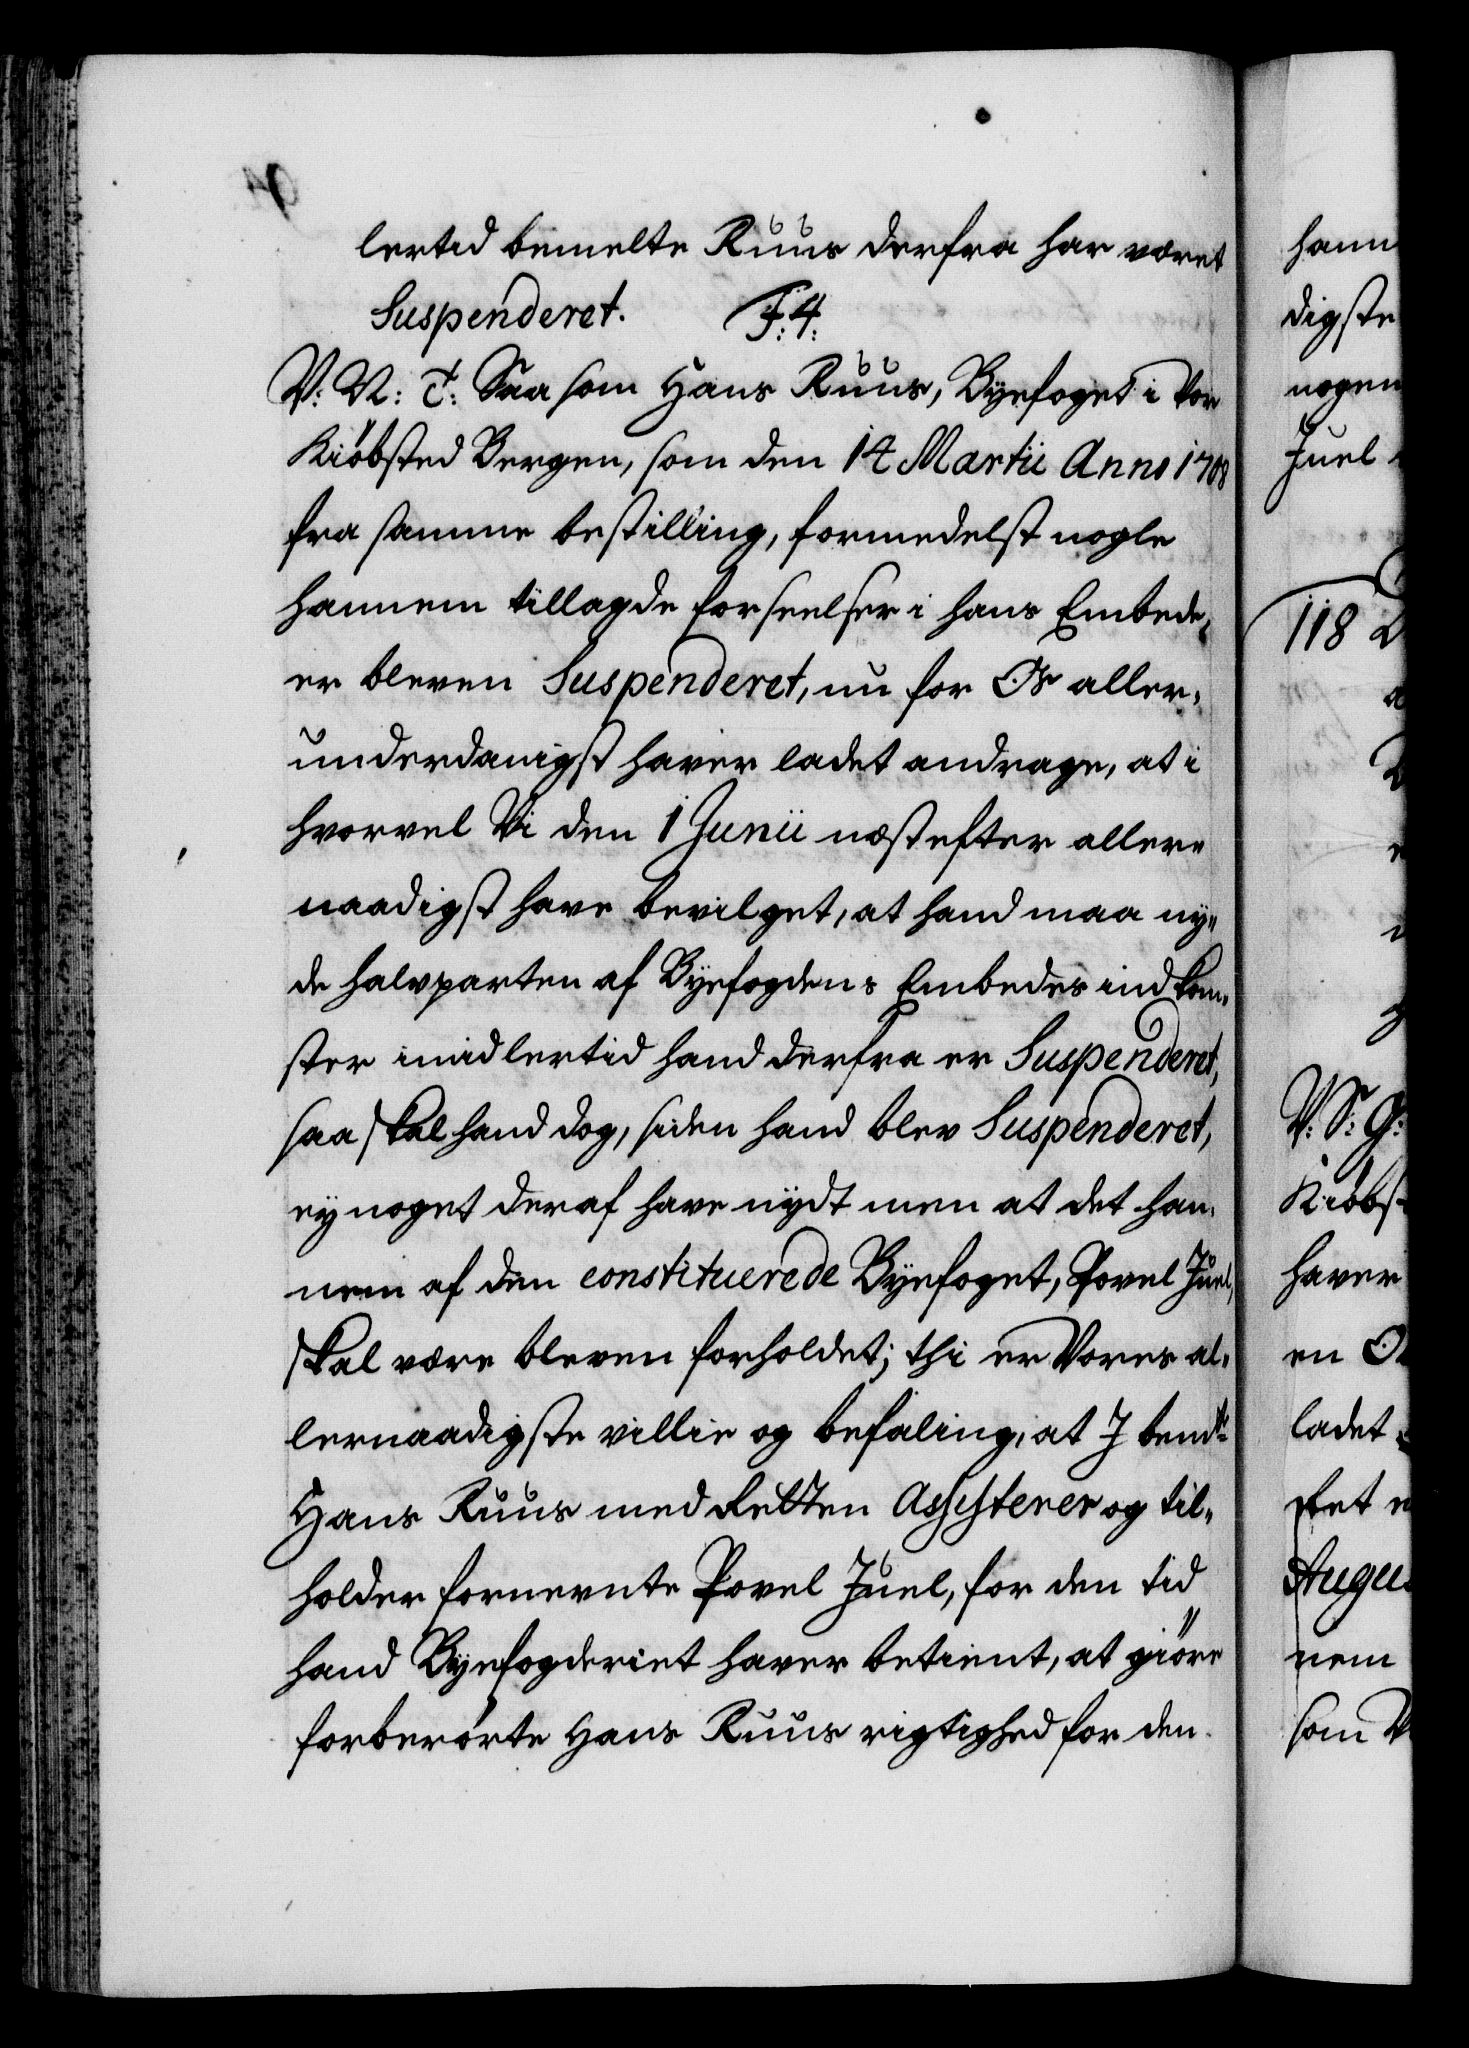 lertid bemelte Ruus derfra har været
Suspenderet. F. 4.
V: V: T: Saa som Hans Ruus, Byefoget i Vor
Kiöbsted Bergen, som den 14 Martii Anno 1708
fra samme bestilling, formedelst nogle
hannem tillagde forseelser i hans Embede,
er bleven Suspenderet, nu for Os aller,
underdanigst haver ladet andrage, at i
hvorvel Vi den 1 Junii næstefter aller„
naadigst have bevilget, at hand maa ny„
de halvparten af Byefogdens Embedes indkom,
ster imidlertid hand derfra er Suspenderet,
saa skal hand dog, siden hand blev Suspenderet,
ey noget deraf have nydt men at det han,
nem af den constituerede Byefoget, Povel Juel,
skal være bleven forholdet; thi er Vores al,
lernaadigste villie og befaling, at I bemte
Hans Ruus med Retten Assisterer og til„
holder fornevnte Povel Juel, for den tid
hand Byefogderiet haver betient, at giöre
forberörte Hans Ruus rigtighed for den
hann
digste
nogen
Juel
118
V: S: G:
Kiöbs
haver
en
ladet
Augu
nem
som